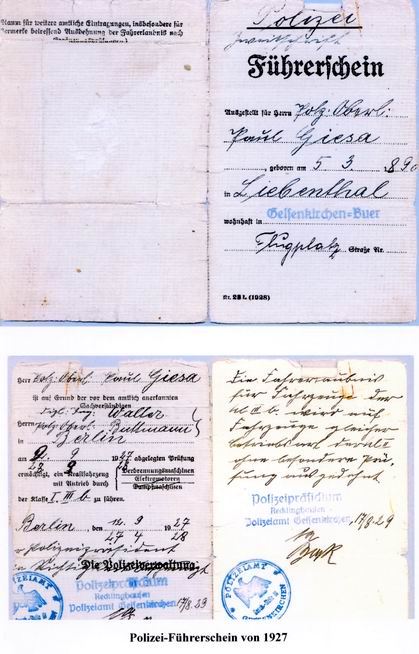 Raum für weitere amtliche Eintragungen, insbesondere für
Vermerke betreffend Ausdehnung der Fahrerlaubnis nach
Polizei
Zweitschrift
Führerschein
Ausgestellt für Herrn Polz. Oberl.
Paul Giesa
, geboren am 5 3. 890
in Liebenthal
wohnhaft in Gelsenkirchen-Buer
Flugplatz Straße Nr.
Nr. 28 I. (1928)
Herr Polz. Oberl. Paul Giesa
ist auf Grund der vor dem amtlich anerkannten
Sachverständigen
Dipl. Ing. Walter
Herrn Polz. Oberl.
in Berlin
am 9 27 abgelegten Prüfung
ermächtigt, ein Kraftfahrzeug
mit Antrieb durch
Verbrennungsmaschinen
Elektromotoren
Dampfmaschinen
der Klasse I, III b zu führen.
Berlin, den 12. 9 1927
27 4 28
Polizeipräsident
Die Polizeiverwaltung
Polizeipräsidium
Recklinghausen
Polizeiamt Gelsenkirchen, 17/8.29
POLIZEIAMT
Die Fahrerlaubnis
für Fahrzeuge der
Kl. b. wird auf
Fahrzeuge gleicher
Betriebsart derselb
ohne besondere Prü-
fung ausgedehnt
Polizeipräsidium
Recklinghausen -
Polizeiamt Gelsenkirchen, 17/8.29
POLIZEIAMT
GELSENKIRCHEN
Polizei-Führerschein von 1927